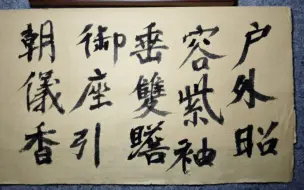 户外昭
容紫袖
垂雙瞻
御座引
朝儀香